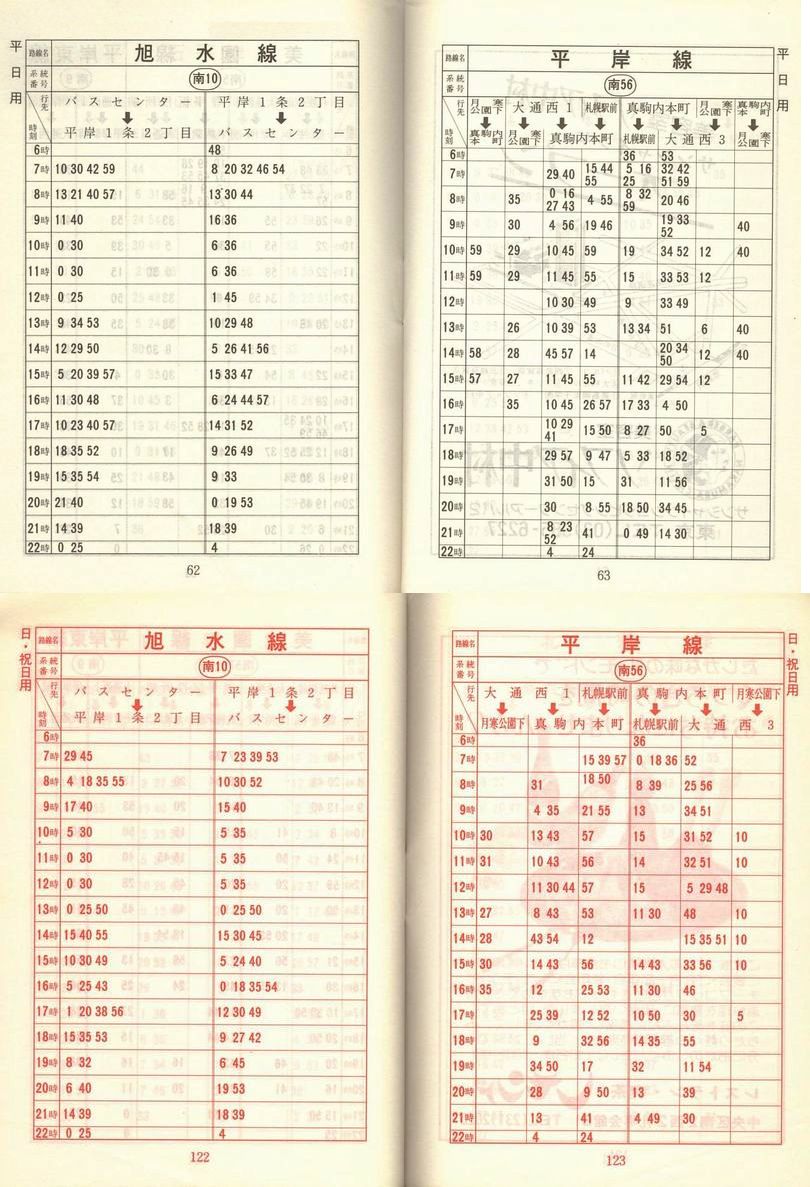 平日用
路線名 旭水線
系統番号 南10
行先 時刻 バスセンター ↓ 平岸1条2丁目 平岸1条2丁目 ↓ バスセンター
6時 48
7時 10 30 42 59 8 20 32 46 54
8時 13 21 40 57 13 30 44
9時 11 40 16 36
10時 0 30 6 36
11時 0 30 6 36
12時 0 25 1 45
13時 9 34 53 10 29 48
14時 12 29 50 5 26 41 56
15時 5 20 39 57 15 33 47
16時 11 30 48 6 24 44 57
17時 10 23 40 57 14 31 52
18時 18 35 52 9 26 49
19時 15 35 54 9 33
20時 21 40 0 19 53
21時 14 39 18 39
22時 0 25 4
62
平日用
路線名 平岸線
系統番号 南56
行先 時刻 月寒公園下 ↓ 真駒内本町 大通西1 ↓ 月寒公園下 真駒内本町 札幌駅前 ↓ 真駒内本町 ↓ 札幌駅前 大通西3 月寒公園下 ↓ 真駒内本町 ↓ 月寒公園下
6時 36 53
7時 29 40 15 44 55 5 16 25 32 42 51 59
8時 35 0 16 27 43 4 55 8 32 59 20 46
9時 30 4 56 19 46 19 33 52 40
10時 59 29 10 45 59 19 34 52 12 40
11時 59 29 11 45 55 15 33 53 12
12時 10 30 49 9 33 49
13時 26 10 39 53 13 34 51 6 40
14時 58 28 45 57 14 20 34 50 12 40
15時 57 27 11 45 55 11 42 29 54 12
16時 35 10 45 26 57 17 33 4 50
17時 10 29 41 15 50 8 27 50 5
18時 29 57 9 47 5 33 18 52
19時 31 50 15 31 11 56
20時 30 8 55 18 50 34 45
21時 8 23 52 41 0 49 14 30
22時 4 24
63
日・祝日用
路線名 旭水線
系統番号 南10
行先 時刻 バスセンター ↓ 平岸1条2丁目 平岸1条2丁目 ↓ バスセンター
6時
7時 29 45 7 23 39 53
8時 4 18 35 55 10 30 52
9時 17 40 15 40
10時 5 30 5 35
11時 0 30 5 35
12時 0 30 5 35
13時 0 25 50 0 25 50
14時 15 40 55 15 30 45
15時 10 30 49 5 24 40
16時 5 25 43 0 18 35 54
17時 1 20 38 56 12 30 49
18時 15 35 53 9 27 42
19時 8 32 6 45
20時 6 40 19 53
21時 14 39 18 39
22時 0 25 4
122
日・祝日用
路線名 平岸線
系統番号 南56
行先 時刻 大通西1 ↓ 月寒公園下 真駒内本町 札幌駅前 ↓ 真駒内本町 ↓ 札幌駅前 大通西3 月寒公園下 ↓
6時 36
7時 15 39 57 0 18 36 52
8時 31 18 50 8 39 25 56
9時 4 35 21 55 13 34 51
10時 30 13 43 57 15 31 52 10
11時 31 10 43 56 14 32 51 10
12時 11 30 44 57 15 5 29 48
13時 27 8 43 53 11 30 48 10
14時 28 43 54 12 15 35 51 10
15時 30 14 43 56 14 43 33 56 10
16時 35 12 25 53 11 30 46
17時 25 39 12 52 10 50 30 5
18時 9 32 56 14 35 55
19時 34 50 17 32 11 54
20時 28 9 50 13 39
21時 13 41 4 49 30
22時 4 24
123